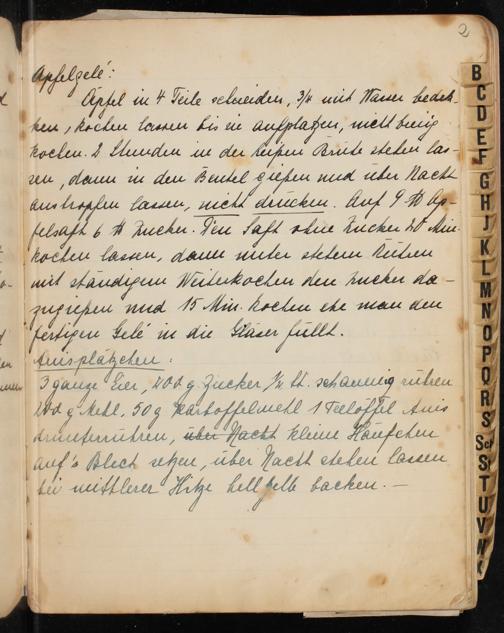 2
Apfelgelé:
Äpfel in 4 Teile schneiden, 3/4 mit Wasser bedek-
ken, kochen lassen bis sie aufplatzen, nicht breiig
kochen. 2 Stunden in der heißen Brühe stehen las-
sen, dann in den Beutel gießen und über Nacht
austropfen lassen, nicht drücken. Auf 9 ℔ Ap-
felsaft 6 ℔ Zucker. Den Saft ohne Zucker 20 Min.
kochen lassen, dann unter stetem Rühren
mit ständigem Weiterkochen den Zucker da-
zugießen und 15 Min. kochen ehe man den
fertigen Gelé in die Gläser füllt.
Anisplätzchen:
3 ganze Eier, 200 g Zucker, 1/2 St. schaumig rühren
200 g Mehl, 50 g Kartoffelmehl 1 Teelöffel Anis
drunterrühren, über Nacht kleine Häufchen
auf's Blech setzen, über Nacht stehen lassen
bei mittlerer Hitze hellgelb backen. —
B
C
D
E
F
G
H
J
K
L
M
N
O
P
Q
R
S
Sch
S
T
U
V
W